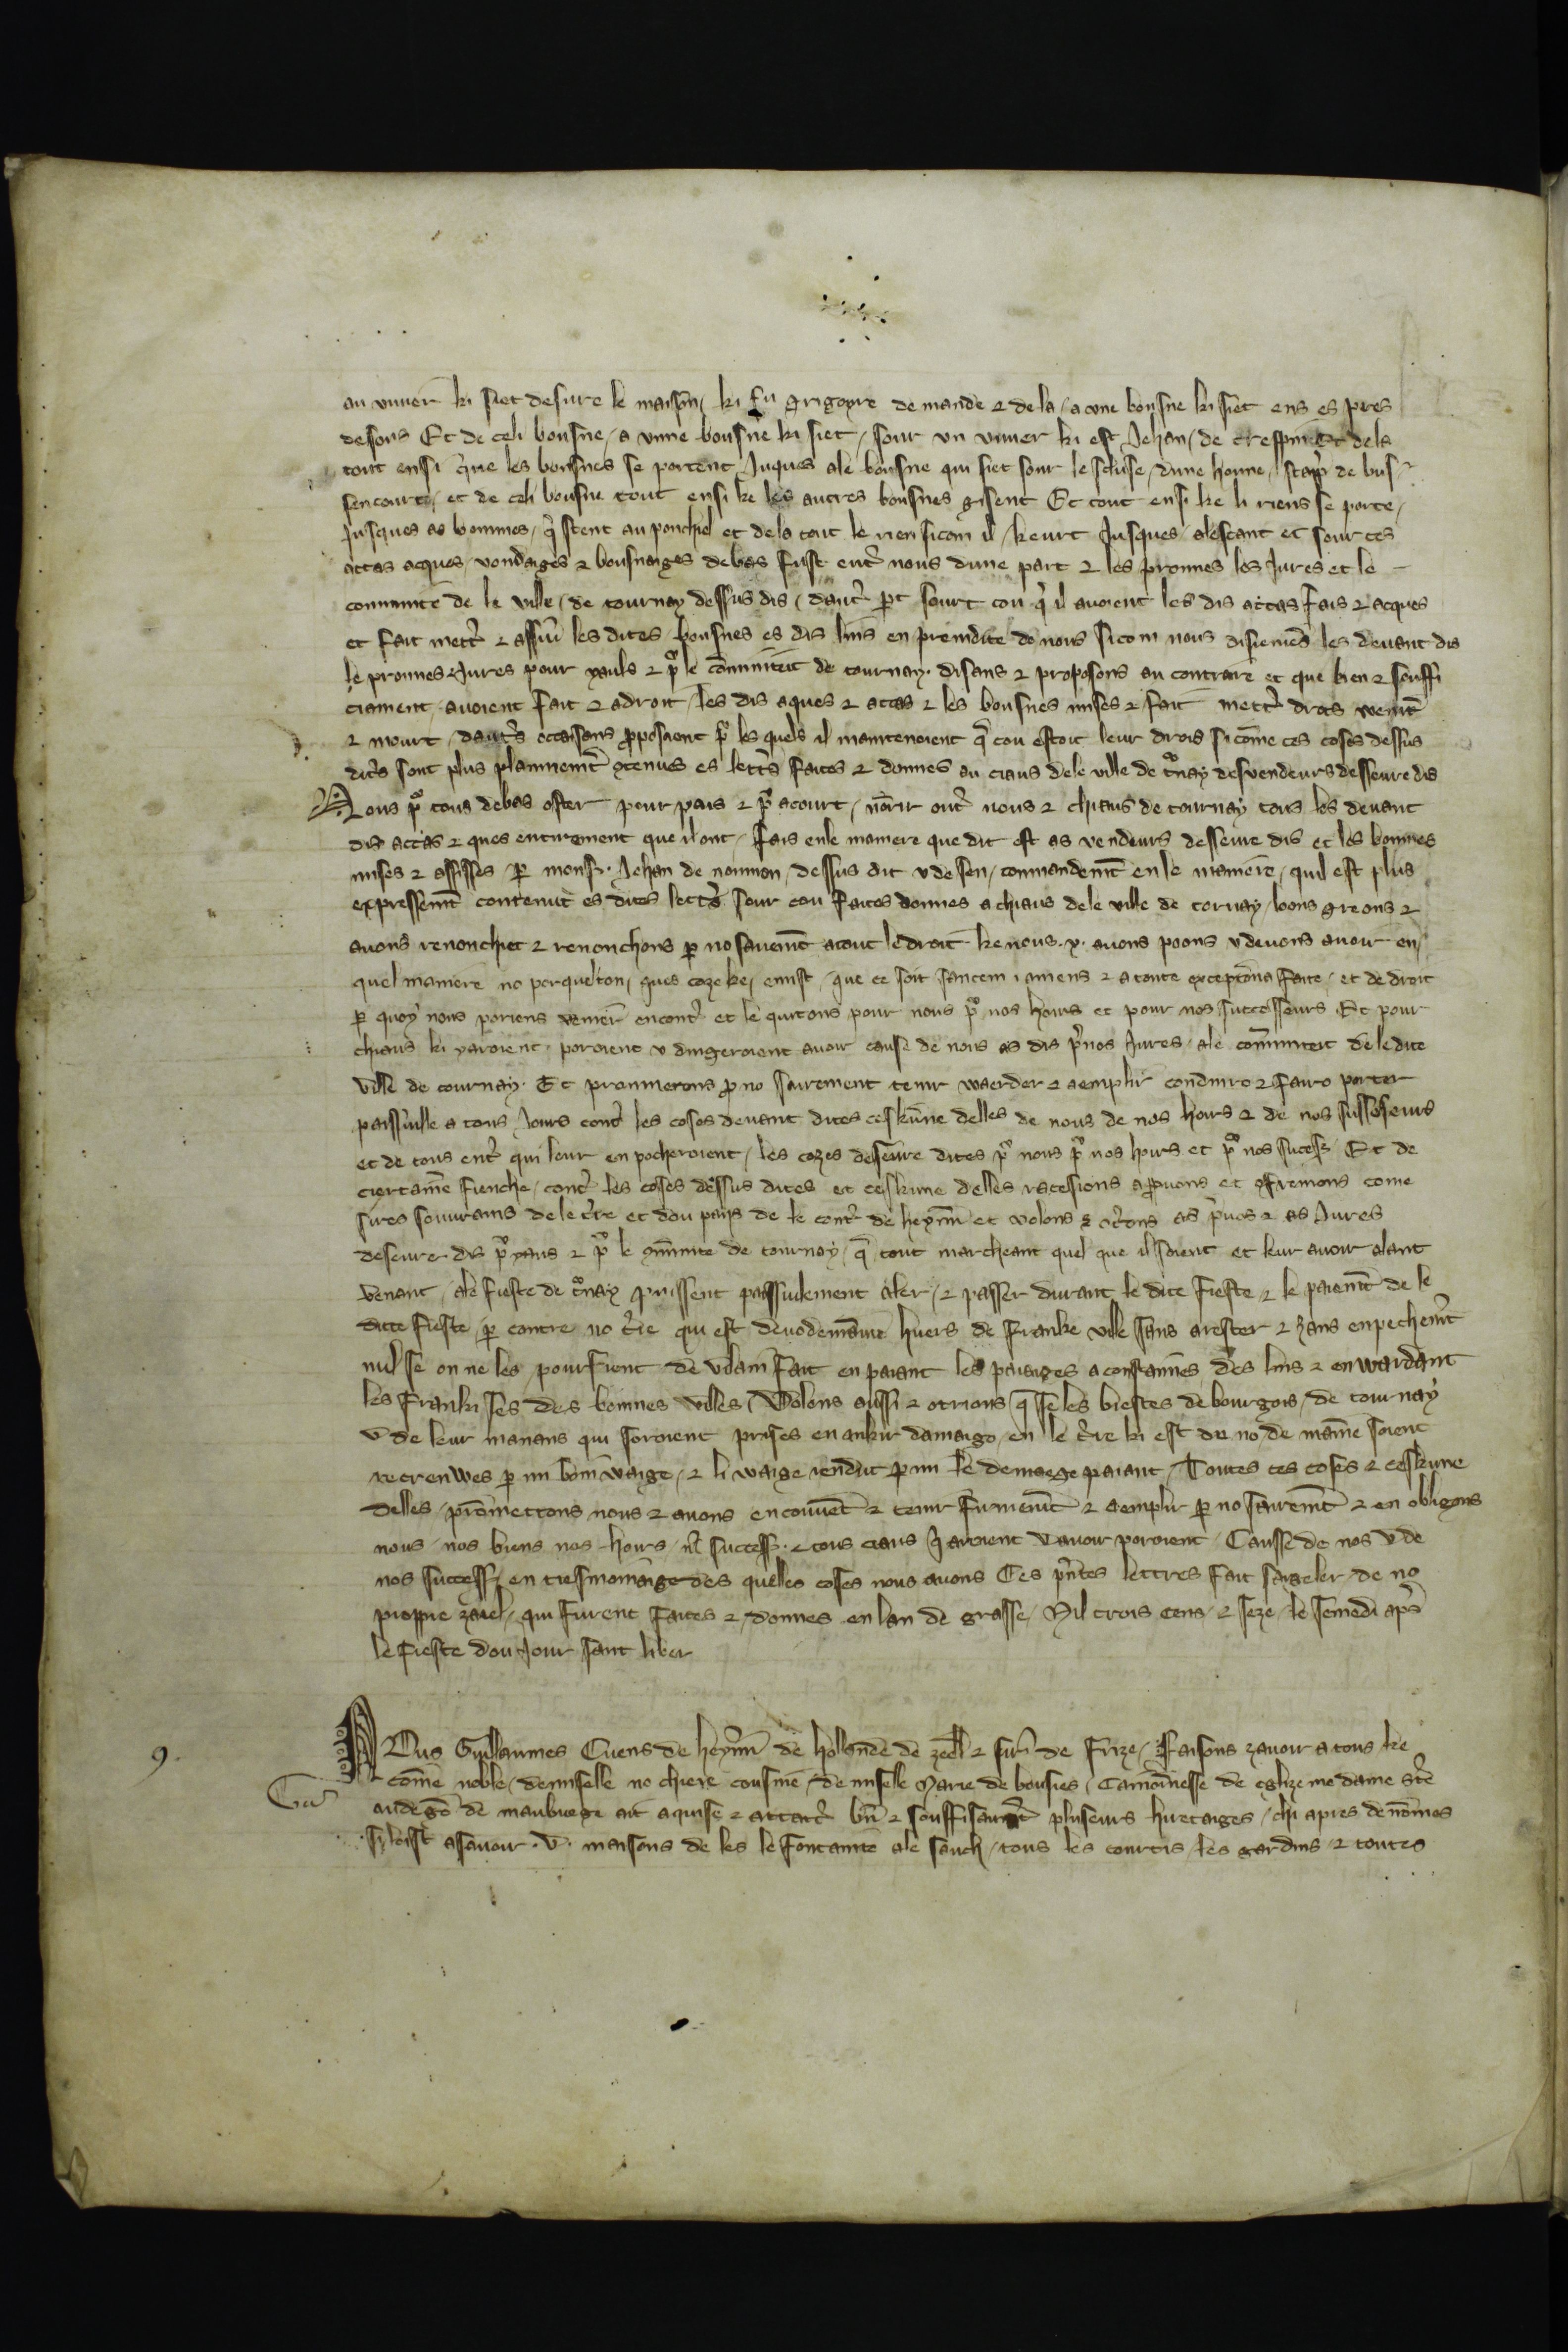 au viuier ki siet desure le maison / ki fu grigoyre de mande ⁊ dela / a vne bousne ki siet ens es pres
desous Et de celi bousne / a vnne bousne ki siet / sour vn viuier ki est Jehan / de crespin Et dela
tout ensi que les bousnes se portent Juques ale bousne qui siet sour le scluse / dune honne / de bus
sencourt / et de celi bousne tout ensi ke les autres bousnes gisent Et tout ensi ke li riens se porte /
Jusques as bommes / q̃ stent au ponchiel et dela tout le rieu sicom il / keurt Jusques alescaut et sour ces
attas acques / vendaiges ⁊ bousnaiges debas fust ent̾ nous dune part ⁊ les prouues les Jures et le
commnite de le ville / de tournay dessus dis / daut̾ p̱t sourt cou q̾ il auoient les dis attas fais ⁊ acques
et fait mett̾ ⁊ assiir les dites bousnes es dis lius en preiudice de nous sicom nous disiemes les deuant dis
le prouues ⁊ Jures pour yauls ⁊ p̾ le commiteit de tournay . disans ⁊ proposons au contraire et que bien ⁊ souffi
ciament / auoient fait ⁊ adroit / les dis aques ⁊ attas ⁊ les bousnes mises ⁊ fait mett̾ drois
⁊ mout / daut̾s occaisons proposoient p̾ les quels il maintenoient q̃ cou estoit leur drois si cõme ces coses dessus
dit̾s sont plus plainnemt̃ 9tenues es lett̾s faites ⁊ donnes au ciaus dele ville de to̾nay desvendeurs desseure dis
Nous p̾ tous debas oster pour pais ⁊ p̾ acourt / norir ent̾ nous ⁊ chiaus de tournay tous les deuant
dis attas ⁊ ques entirement que il ont / fais enle maniere que dit est as vendeurs desseure dis et les bonnes
mises ⁊ assisses / p̱ mons̾ . Jehan de noumon / dessus dit v de sen / commandemt̃ en le maniere / quil est plus
expressemt̃ contenut es dites lett̾s sour cou faites donnes a chiaus dele ville de tornay / loons greons ⁊
auons renonchiet ⁊ renonchons p̱ no sairemt̃ atout le droit ke nous . y . auons poons v deuons auoir en /
quel maniere no porquelton / ques coze ke / que ce soit ⁊ a toute exceptiõ / et de droit
p̱ quoy nous poriens venir encont̾ et le quitons pour nous p̾ nos hoirs et pour nos successeurs Et pour
chiaus ki yaroient / poroient v auoir cause de nous as dis p̾uos Jures / ale commiteit dele dite
ville de tournay . Et prommetons p̱ no sairement tenir waerder ⁊ aemplir conduire ⁊ faire porter
paissiulle a tous Jours cont̾ les coses deuant dites ceskune delles de nous de nos hoirs ⁊ de nos susseseurs
et de tous ent̾ qui leur enpecheroient / les cozes deseure dites p̾ nous p̾ nos hoirs et p̾ nos sucess̾ Et de
ciertaine sienche / cont̾ les coses dessus dites et ceskune delles racesions aprouuons et 9fremons come
sires souurains dele t̾re et dou pays de le cont̾ de heynnĩ et volons ⁊ ot̾ons as p̾uos ⁊ as Jures
deseure dis p̾ yaus ⁊ p̾ le 9mmite de tournay / q̃ tout marcheant quel que il soient et leur auoir alant
venant / ale fieste de to̾nay puissent paissiulement aler / ⁊ passer durant le dite fieste ⁊ le paiemt̃ de le
ditte fieste / p̱ contre no t̾re qui est hiuers de franke ville sans arester ⁊ zans enpechemt̃
nul se on ne les / poursieut de vilain fait en paiant les paiaiges acoustumes des lius ⁊ en wardant
les frankises des bonnes villes / Volons aussi ⁊ otrions / q̃ se les biestes de bourgois / de tournay
v de leur manans qui seroient prises en aukun damaige / en le t̾re ki est de no demaine soient
recrenwes p̱ mi boin waige / ⁊ li waige rendut p̱ mi le demaege paiant / Toutes ces coses ⁊ ceskune
delles / prõmettons nous ⁊ auons encouuẽt ⁊ tenir firmemt̃ ⁊ aemplir p̱ no sairemt̃ ⁊ en obligons
nous / nos biens nos hoirs / nos success̾ . ⁊ tous ciaus q̾ aroient v auoir poroient / Causse de nos v de
nos success̾ / en tiesmoinaige des quelles coses nous auons Ces p̾ntes lettres fait saieler / de no
proppre zaiel / qui furent faites ⁊ / donnes en lan de grasse / Mil trois cens / ⁊ seze / le semedi ap̾s
le fieste dou Jour saint liber
9. NOus Guillaumes Cuens de heyn̾ de hollande de zeell̃ ⁊ sir̾ de frize / Faisons zauoir a tous ke
cõme noble / demiselle no chiere cousine / demiselle Marie de bousies / Canoinnesse de eglize me dame ste
audegõ de maubuege ait aquise ⁊ attat̾ bñ ⁊ souffisaumt̃ pluseurs hiretaiges / chi apries denommes
si loist assauoir . v . maisons de les le fontainne ale sauch / tous les courtis / les gardins ⁊ toutes